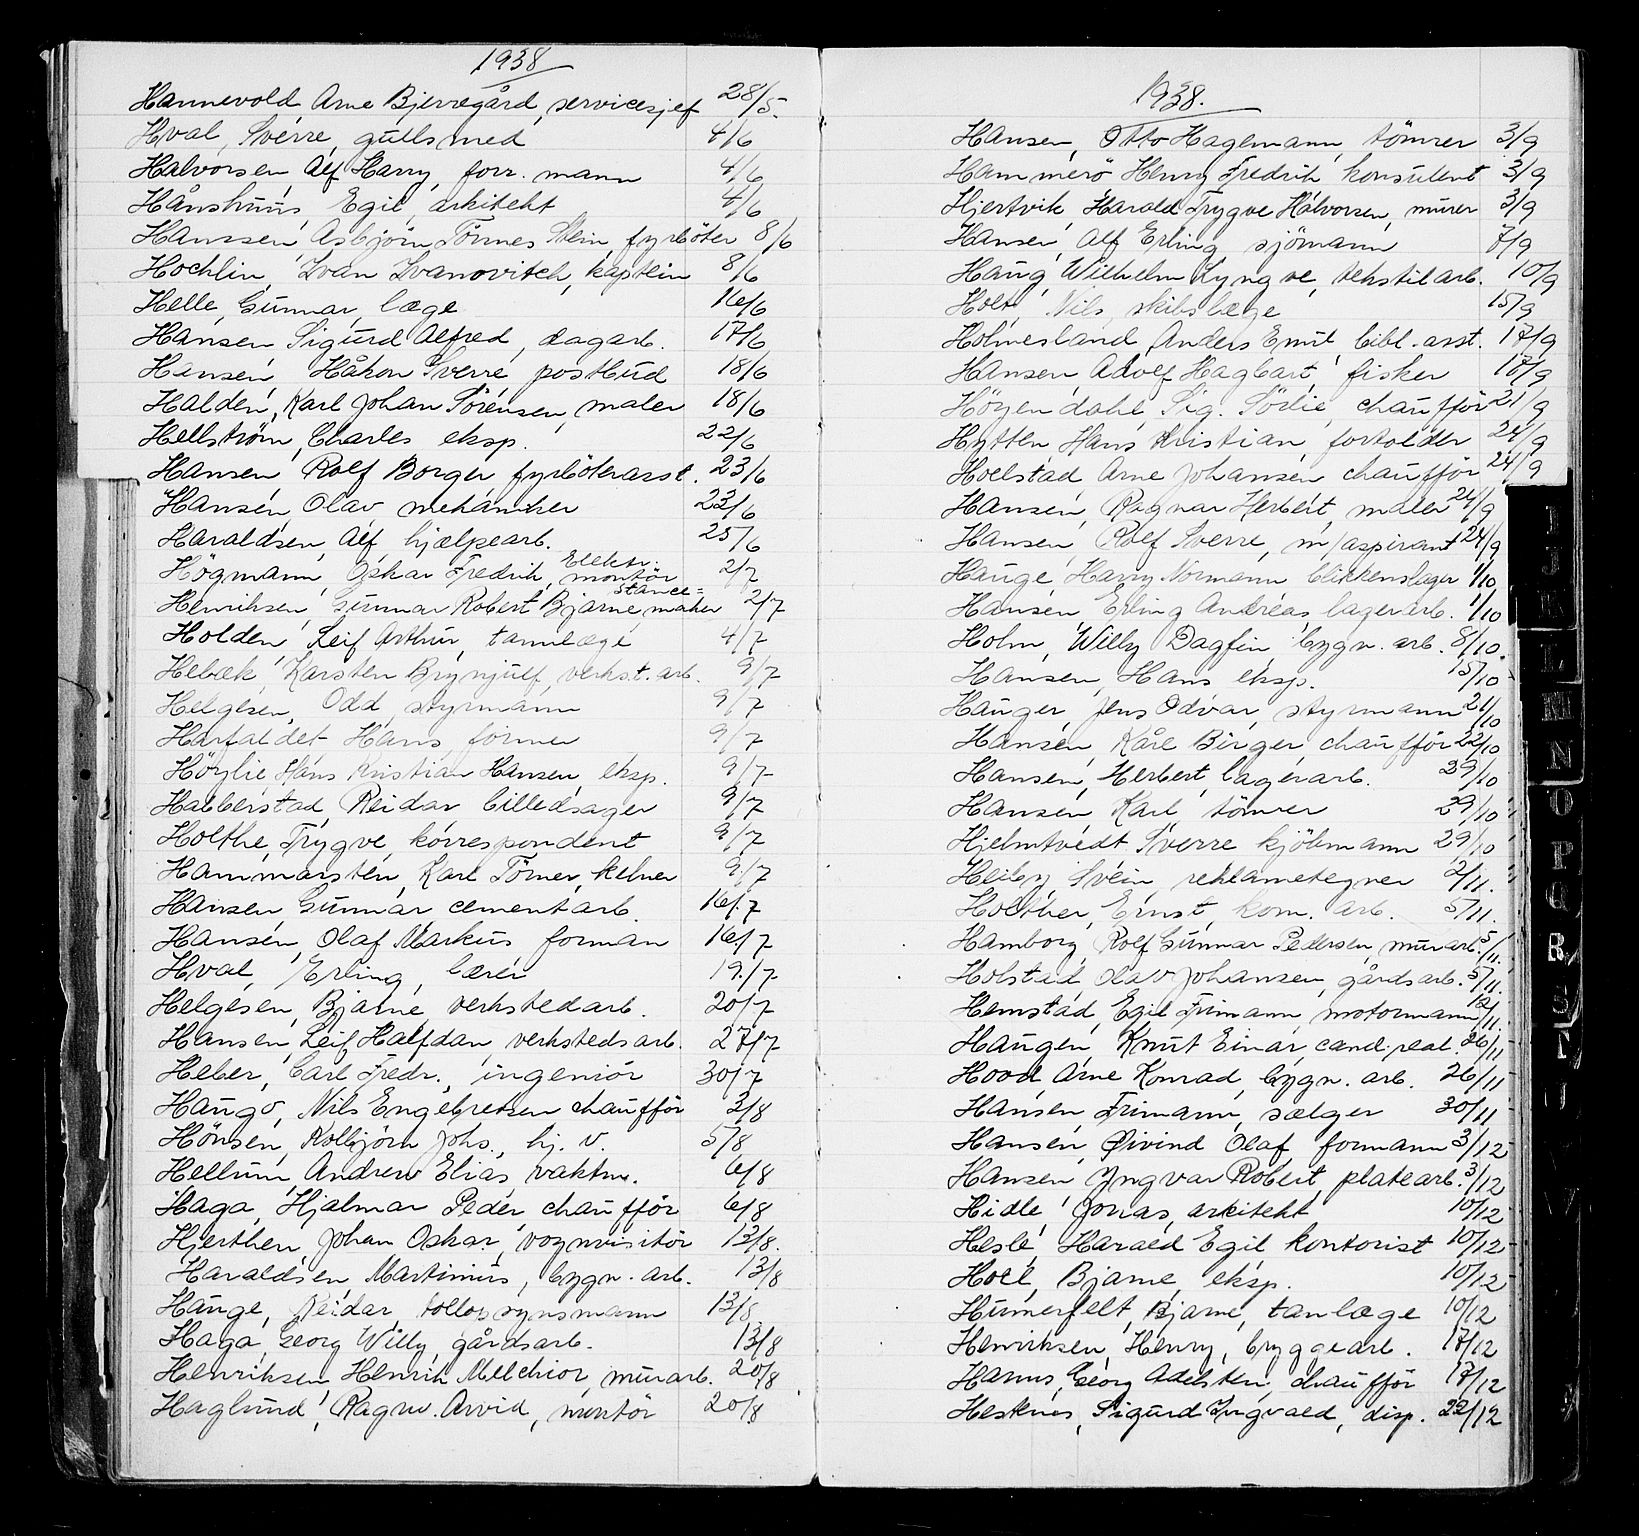 1938
Hannevold Arne Bjerregård, servicesjef 28/5.
Hval, Sverre, gullsmed 4/6
Halvorsen Alf Harry, forr. mann 4/6
Hånshuus, Egil, arkitekt 4/6
Hanssen, Asbjörn Tönnes Stein, fyrböter 8/6
Hochlin, Ivan Ivanovitch, kaptein 8/6
Helle, Gunnar, læge 16/6
Hansen, Sigurd Alfred, dagarb. 17/6
Hansen, Håkon Sverre postbud 18/6
Halden, Karl Johan Sörensen, maler 18/6
Hellström, Charles eksp. 22/6
Hansen, Rolf Borger fyrböterasst. 23/6
Hansen Olav mekaniker 23/6
Haraldsen, Alf, hjælpearb. 25/6
Högmann, Oskar Fredrik, Elektr. montör 2/7
Henriksen, Gunnar Robert Bjarne, stance=maker 2/7
Holden, Leif Arthur, tannlæge 4/7
Hebæk, Karsten Brynjulf, verkst. arb. 9/7
Helgesen, Odd, styrmann 9/7
Harfaldet Hans, former 9/7
Höylie, Hans Kristian Hansen, eksp. 9/7
Halberstad, Reidar billedsager 9/7
Holthe, Trygve, korrespondent 9/7
Hammarsten, Karl Törner, kelner 9/7
Hansen, Gunnar, cementarb. 16/7
Hansen, Olaf Markus forman 16/7
Hval, Erling, lærer 19/7
Helgesen, Bjarne, verkstedarb. 20/7
Hansen, Leif Halfdan, verkstedsarb. 27/7
Heber, Carl Fredr., ingeniör 30/7
Haugo, Nils Engebretsen chaufför 3/8
Hönsen, Kolbjörn Johs., hj. v. 5/8
Hellum, Andrew Elias vaktm. 6/8
Haga, Hjalmar Peder, chaufför 6/8
Hjerthen, Johan Oskar, vognvisitör 13/8.
Haraldsen Martinius, bygn. arb. 13/8
Hauge, Reidar, tollopsynsmann 13/8
Haga, Georg Willy, gårdsarb. 13/8
Henriksen Henrik Melchior, murarb. 20/8
Haglund, Ragnv. Arvid, montör 20/8
1938.
Hansen, Otto Hagemann, tömrer 3/9
Hammerö Henry Fredrik konsulent 3/9
Hjertvik, Harald Trygve Halvorsen, murer 3/9
Hansen, Alf Erling, sjömann 7/9
Haug, Wilhelm Lyngve, tekstilarb. 10/9
Holt, Nils, skibslæge 15/9
Holmesland, Anders Emil bibl. asst. 17/9
Hansen Adolf Hagbart, fisker 18/9
Höyendahl, Sig. Sörlie, chaufför 21/9
Hytten Hans Kristian, fortolder 24/9
Hoelstad Arne Johansen chaufför 24/9
Hansen, Ragnar Herbert, maler 24/9
Hansen, Rolf Sverre, m/aspirant 24/9
Hauge, Harry Normann blikkenslager 1/10
Hansen, Erling Andreas, lagerarb. 1/10
Holm, Willy Dagfin bygn. arb. 8/10.
Hansen, Hans eksp. 15/10
Hauger, Jens Odvar, styrmann 21/10
Hansen, Kåre Birger, chaufför 22/10
Hansen, Herbert, lagerarb. 29/10
Hansen, Karl, tömrer 29/10
Hjelmtvedt Sverre kjölmann 29/10
Heiby, Svein, reklametegner 2/11.
Holther, Ernst, kom. arb. 5/11.
Hamborg, Rolf Gunnar Pedersen, murarb. 5/11.
Holstad, Olav Johansen, gårdsarb. 5/11.
Hemstad, Egil Frimann, motormann 12/11.
Haugen, Knut Einar, cand. real. 26/11
Hood, Arne Konrad, bygn. arb. 26/11
Hansen, Frimann, sælger 30/11
Hansen, Øivind Olaf formann 3/12
Hansen, Yngvar Robert platearb. 3/12
Hidle, Jonas, arkitekt 10/12
Hesle, Harald Egil kontorist 10/12
Holl, Bjarne, eksp. 10/12
Humerfelt, Bjarne, tanlæge 10/12
Henriksen, Henry, byggearb. 17/12
Hanns, Georg Adelsten, chaufför 17/12
Hesknes, Sigurd Yngvald, disp. 22/12
I
J
K
L
M
N
O
P
Q
R
S
T